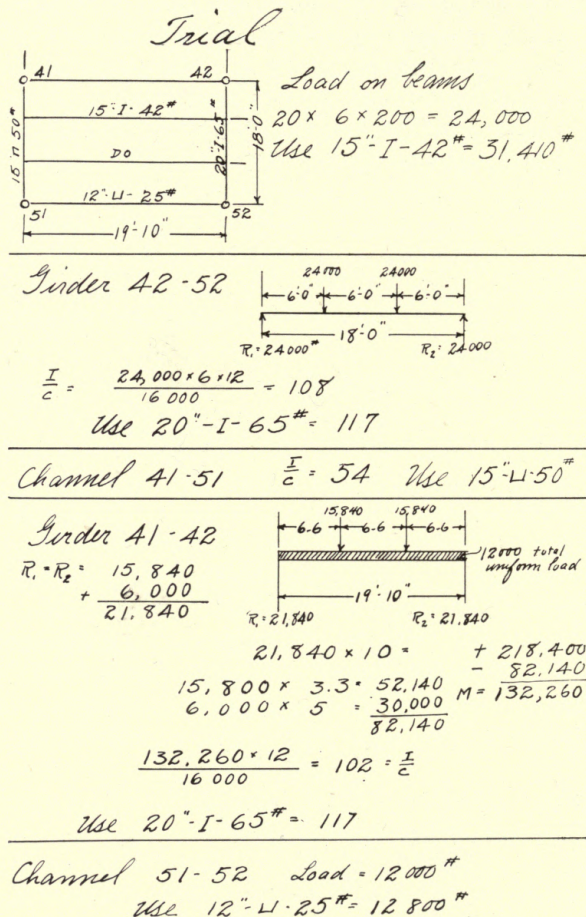 Trial
41 42
15"-I-42#
DO
12"-⊔-25#
51 52
15"⊓50#
20"-I-65#
18'-0"
19'-10"
Load on beams
20 × 6 × 200 = 24,000
Use 15"-I-42# = 31,410#
Girder 42-52
24000 24000
6'-0" 6'-0" 6'-0"
18'-0"
R₁=24000# R₂=24000
I/c = 24,000 × 6 × 12 / 16 000 = 108
Use 20"-I-65# = 117
Channel 41-51 I/c = 54 Use 15"-⊔-50#
Girder 41-42
R₁=R₂= 15,840
+ 6,000
21,840
15,840 15,840
6.6 6.6 6.6
12000 total
uniform load
19'-10"
R₁=21,840 R₂=21,840
21,840 × 10 = + 218,400
15,800 × 3.3 = 52,140 - 82,140
6,000 × 5 = 30,000 M = 132,260
82,140
132,260 × 12 / 16 000 = 102 = I/c
Use 20"-I-65# = 117
Channel 51-52 Load = 12000#
Use 12"-⊔-25# = 12 800#